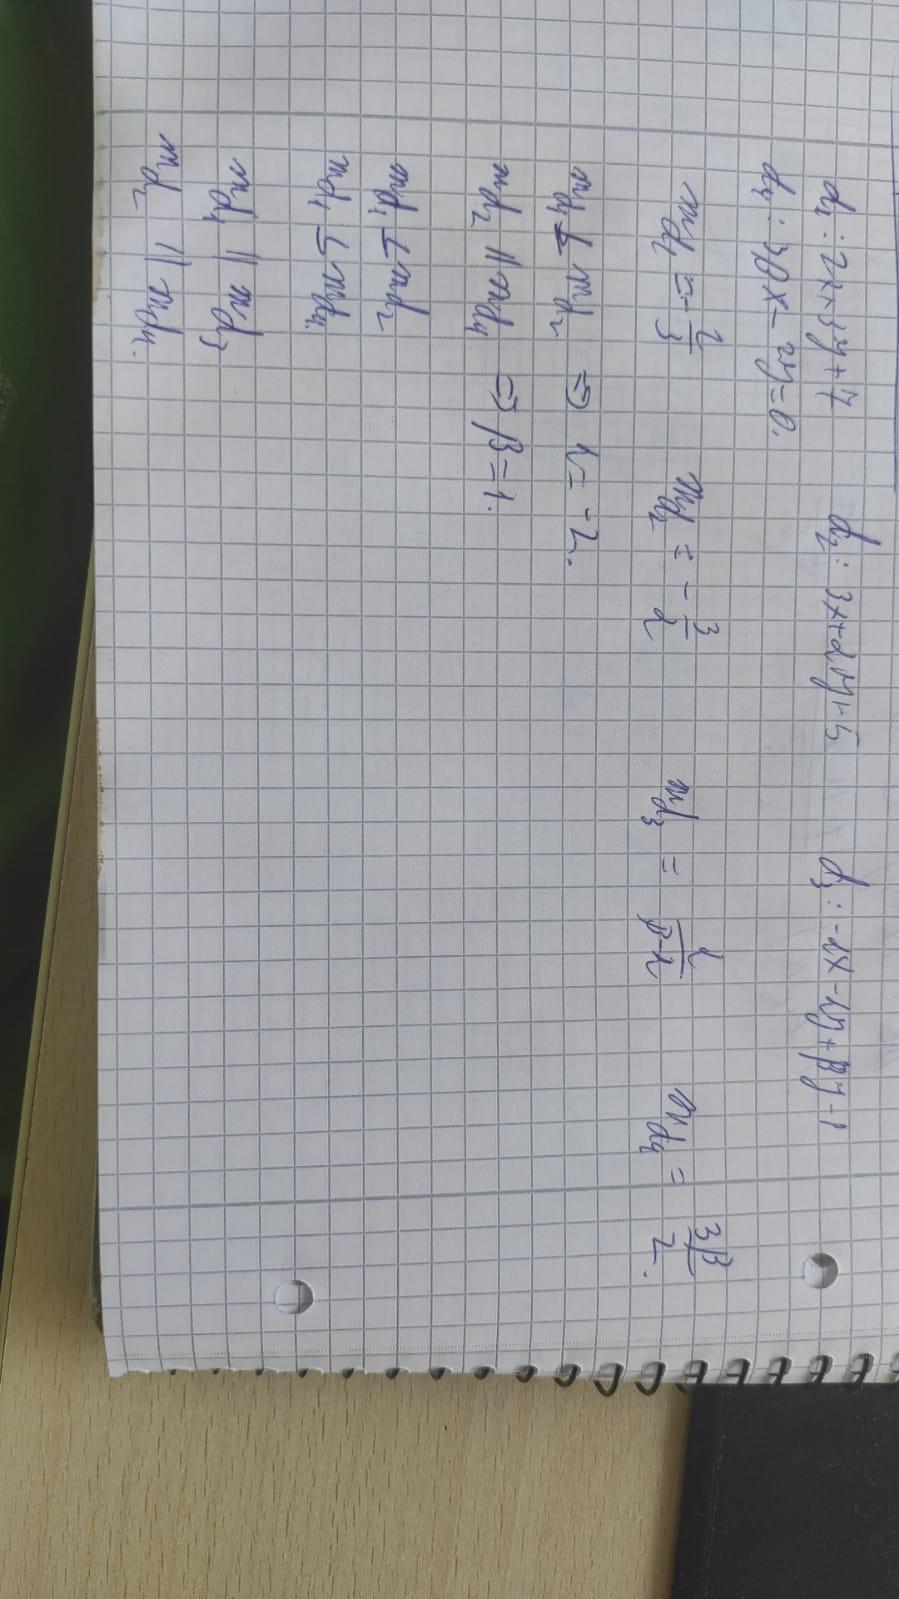 d₁: 2x+3y+7 d₂: 3x+αy+5 d₃: -αx-αy+βy-1
d₄: 3βx-2y=0.
md₁ = -2/3 md₂ = -3/α md₃ = α/β-α md₄ = 3β/2.
md₁ ⊥ md₂ ⇒ α=-2.
md₂ ∥ md₄ ⇒ β=1.
md₁ ⊥ md₂
md₁ ⊥ md₄
md₁ ∥ md₃
md₂ ∥ md₄.